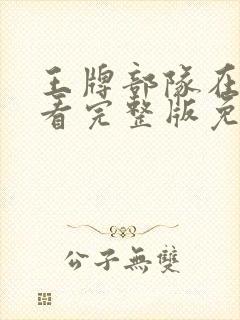 王牌部队在
看完整版免
公子無雙